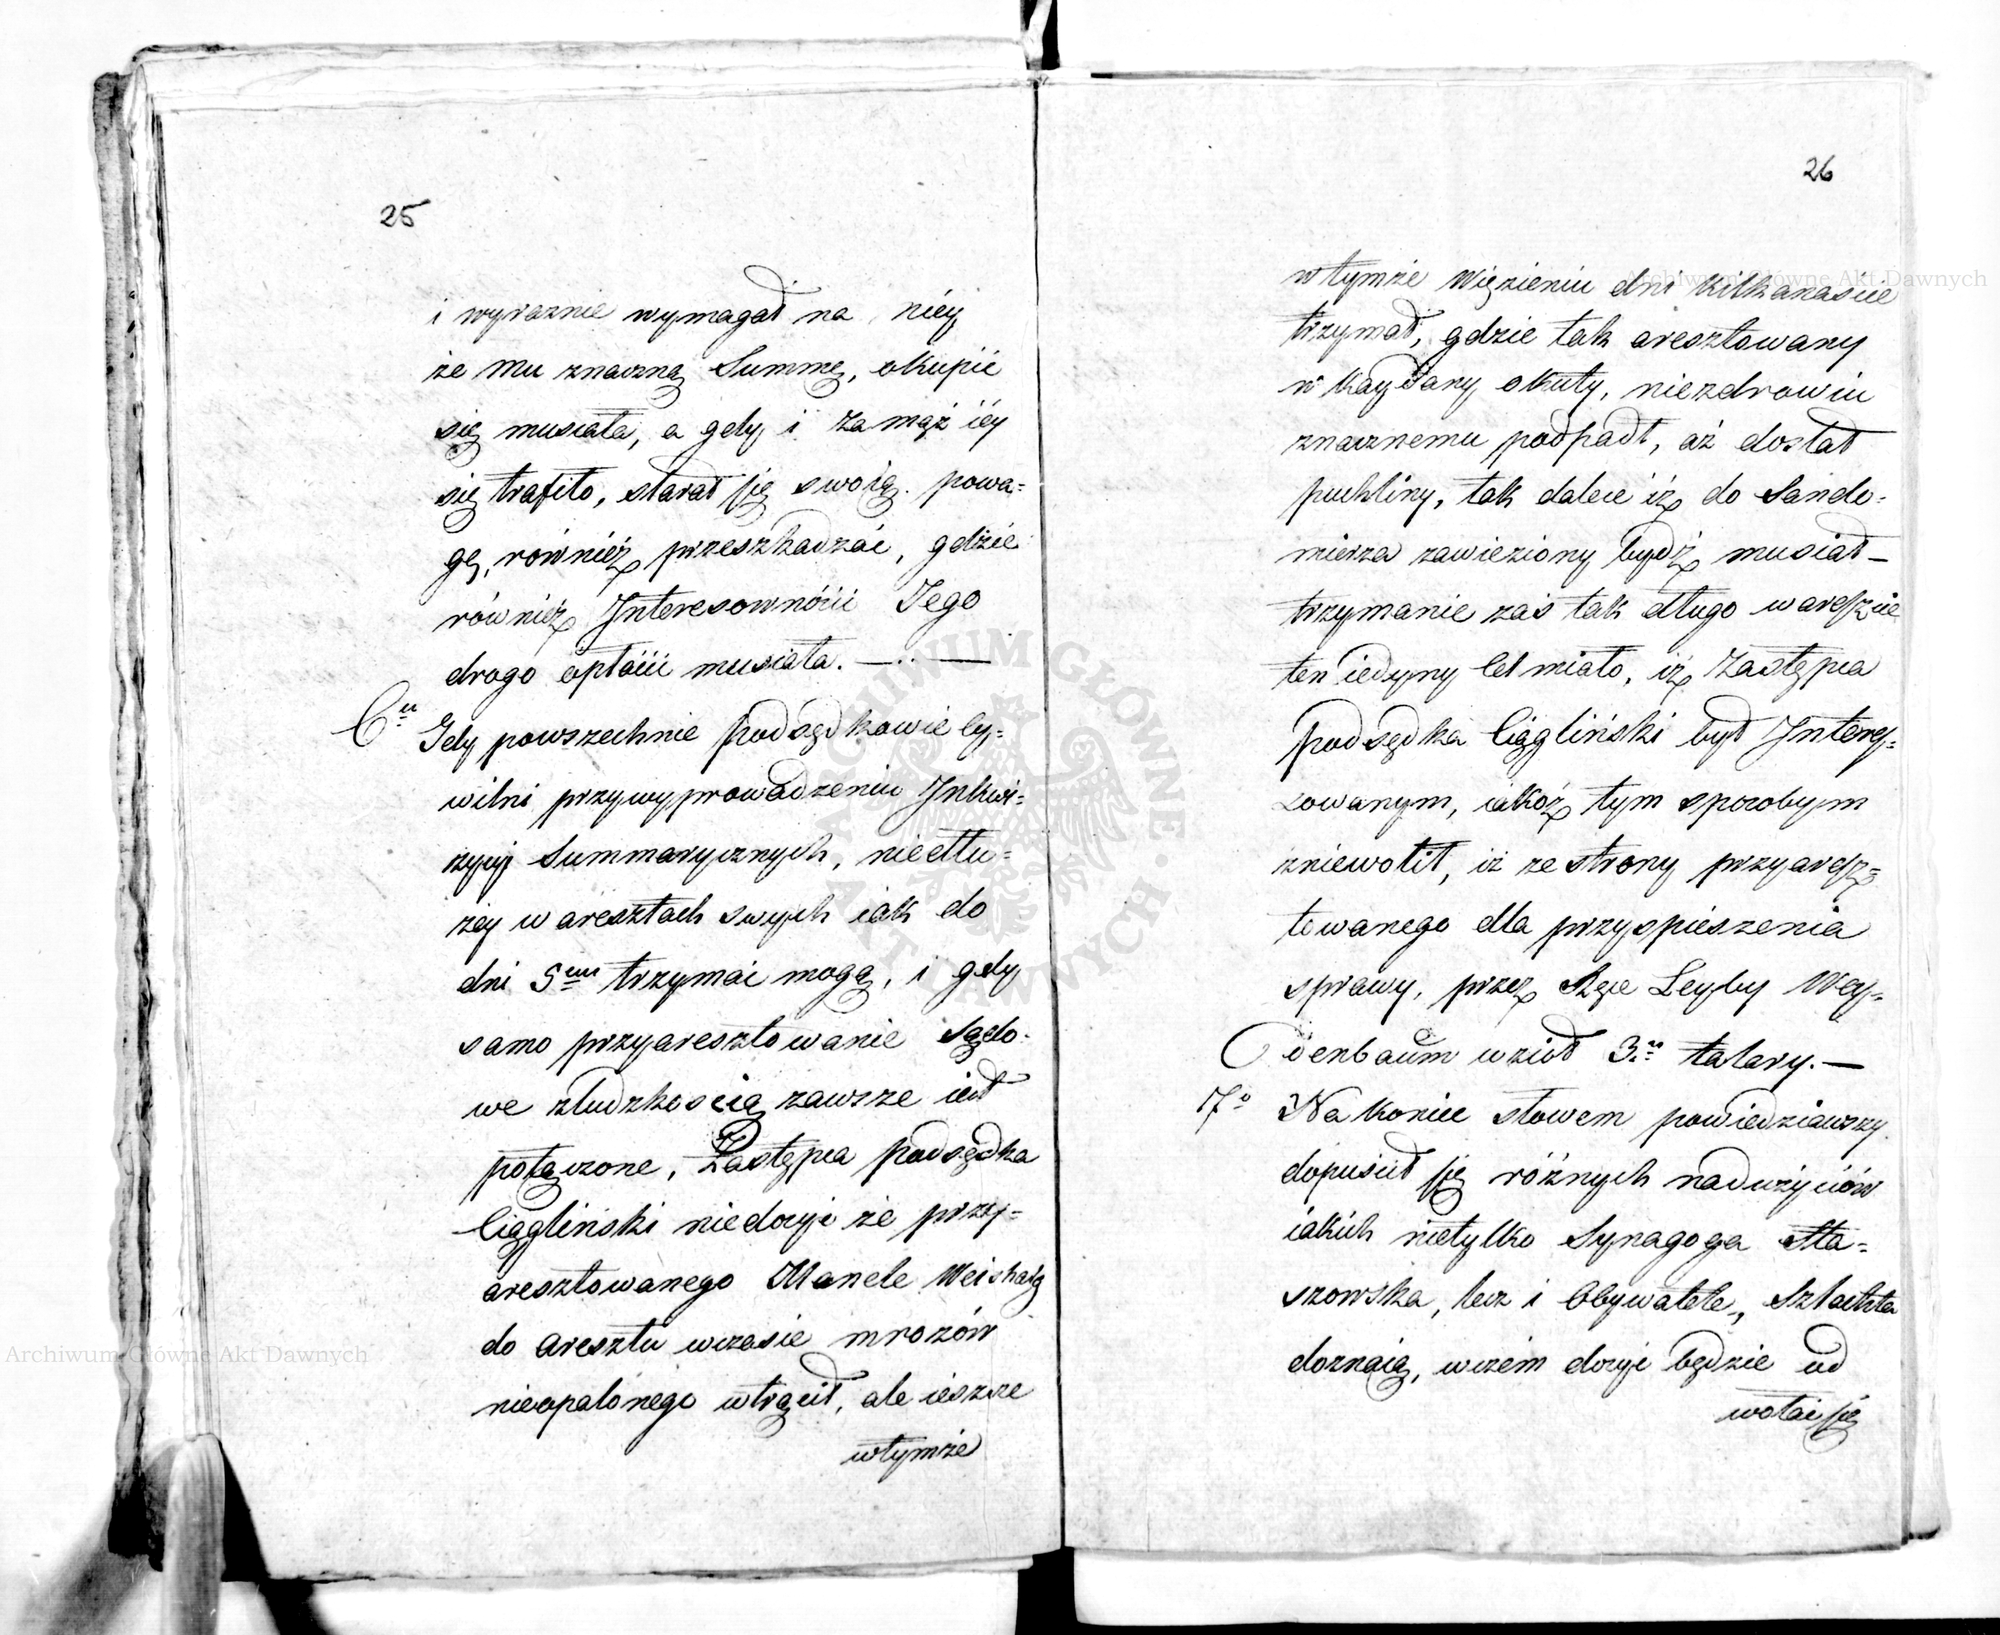 25
i wyraznie wymagał na niéy
że mu znaczną Summę, okupić
się musiała, a gdy i za mąż iéy
się trafiło, starał się swoią powa-
gę, również przeszkadzać, gdzie
również Interesowności Jego
drogo opłacić musiała. —..—
6u Gdy powszechnie Podsędkowie Cy-
wilni przy wyprowadzeniu Inkwi-
zycyi Summarycznych, niedłu-
żey w aresztach swych iak do
dni 3um trzymać mogą, i gdy
samo przyaresztowanie Sądo-
we z ludzkością zawsze iest
połączone, Zastępca Podsędka
Ciągliński niedosyć że przy-
aresztowanego Manele Weishaią
do aresztu wczasie mrozów
nieopalonego wtrącił, ale ieszcze
wtymże
26
wtymże Więzieniu dni kilkanaście
trzymał, gdzie tak aresztowany
w kaydany okuty, niezdrowiu
znacznemu podpadł, aż dostał
puchliny, tak dalece iż do Sando-
mierza zawieziony bydź musiał —
trzymanie zaś tak długo w areszcie
ten iedyny Cel miało, iż Zastępca
Podsędka Ciągliński był Interes-
sowanym, iakoż tym sposobym
zniewolił, iż ze strony przyaresz-
towanego dla przyspieszenia
sprawy, przez Ręce Leyby Wey-
denbaum wziął 3.u talary. —
7o Na koniec słowem powiedziawszy
dopuścił się różnych nadużyciów
iakich nietylko Synagoga Sta-
szowska, lecz i Obywatele, Szlachta
doznaią, wczém dosyć będzie od
wołać się
Archiwum Główne Akt Dawnych
Archiwum Główne Akt Dawnych
ARCHIWUM GŁÓWNE AKT DAWNYCH